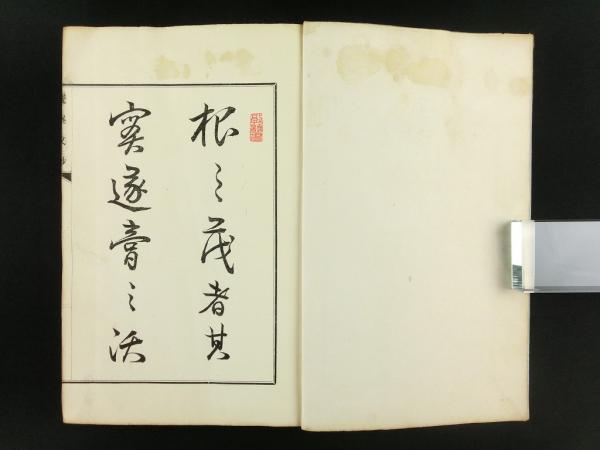 根之茂者其
實遂膏之沃